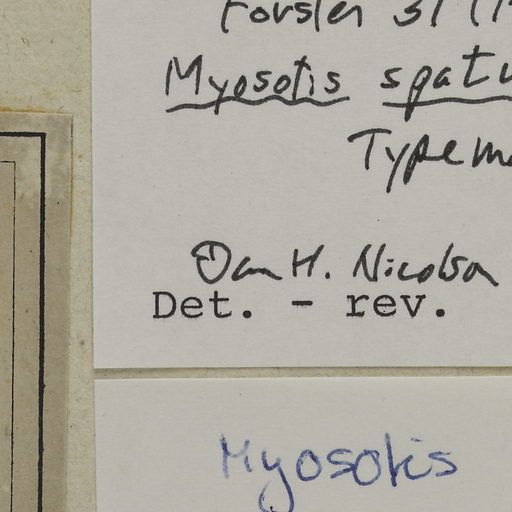 Forster 31
Myosotis spatu
Type ma
Dan H. Nicolson
Det. - rev.
Myosotis